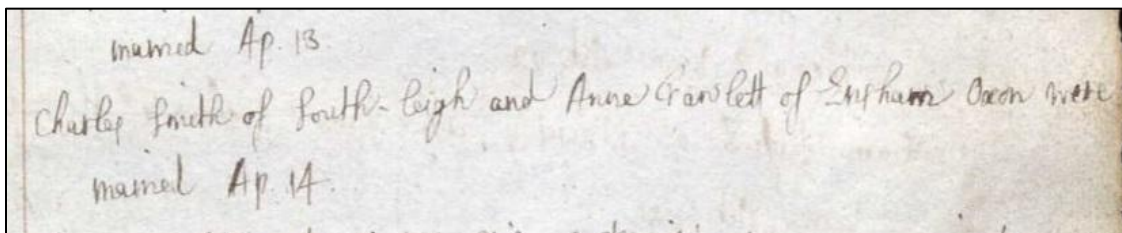 married Ap. 13
Charles Smith of South-leigh and Anne Crawlett of Ensham Oxon were
married Ap. 14.